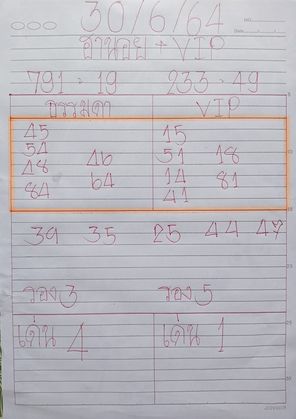 30/6/64
ฮานอย + VIP
791 - 19 233 - 49
ธรรมดา VIP
45 15
54 46 51 18
48 64 14 81
84 41
39 35 25 44 47
รอง 3 รอง 5
เด่น 4 เด่น 1